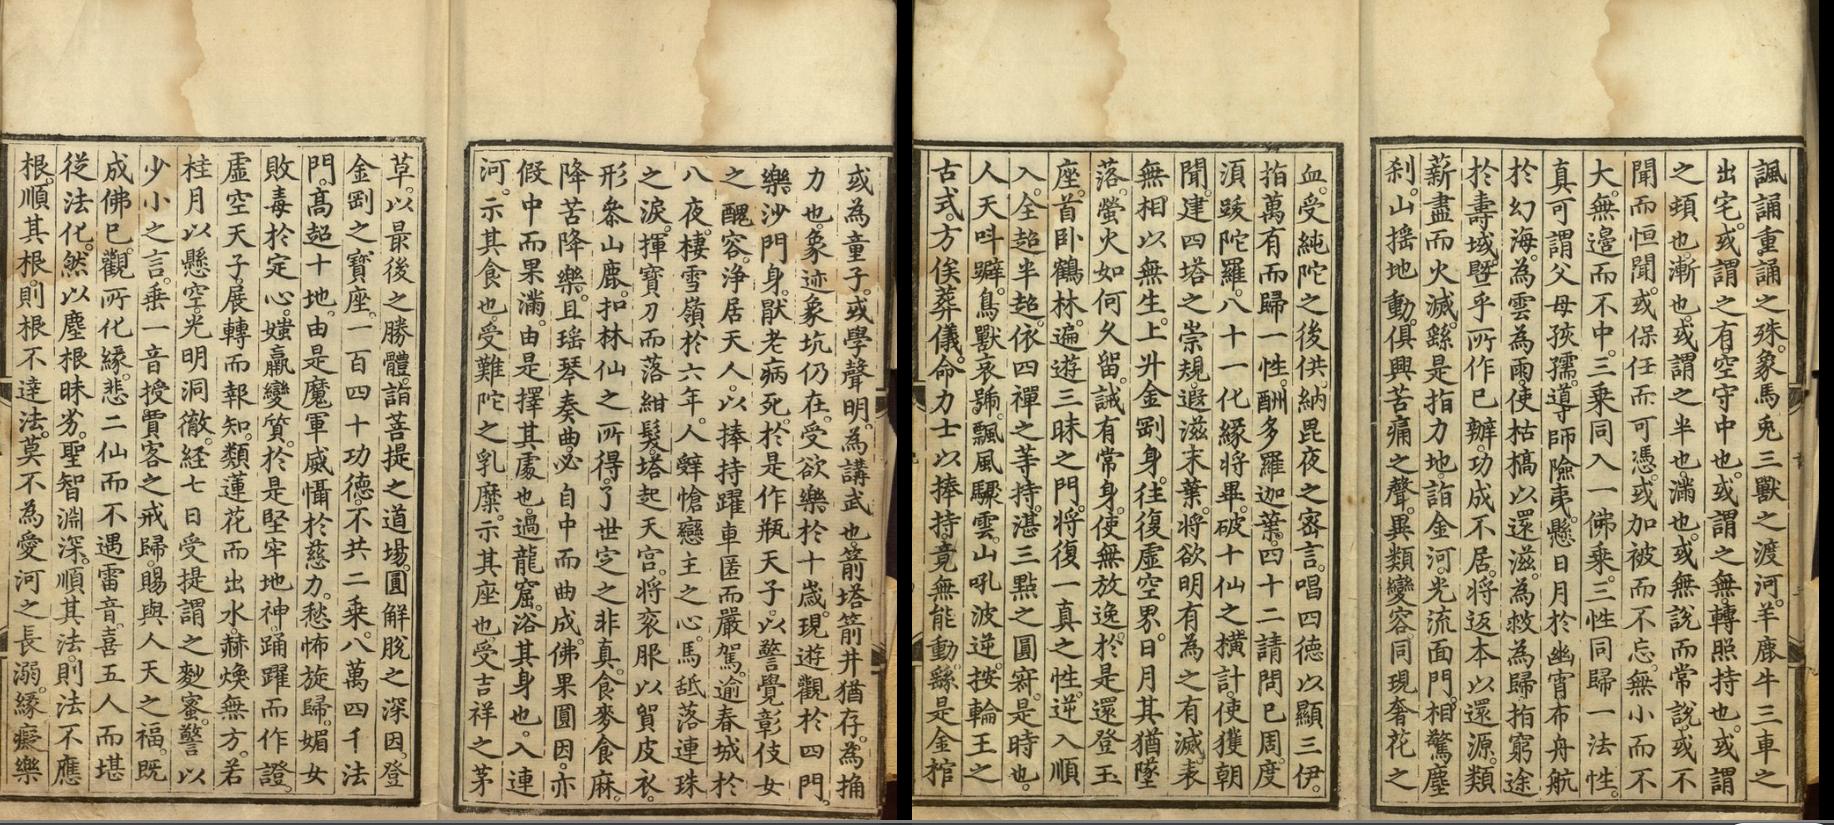 或為童子。或學聲明。為講武也。箭塔箭井猶存。為捔
力也。象迹象坑仍在。受欲樂於十歲。現遊觀於四門。
樂沙門身。厭老病死。於是作瓶天子。以警覺彰伎女
之醜容。淨居天人。以捧持躍車匿而嚴駕。逾春城於
八夜。棲雪嶺於六年。人辭愴戀主之心。馬舐落連珠
之淚。揮寶刀而落紺髮。塔起天宮。將袞服以貿皮衣。
形參山鹿。扣林仙之所得。了世定之非真。食麥食麻。
降苦降樂。且瑤琴奏曲。必自中而曲成。佛果圓因。亦
假中而果滿。由是擇其處也。過龍窟。浴其身也。入連
河。示其食也。受難陀之乳糜。示其座也。受吉祥之茅
草。以最後之勝體。詣菩提之道場。圓解脫之深因。登
金剛之寶座。一百四十功德。不共二乘。八萬四千法
門。高超十地。由是魔軍威懾於慈力。愁怖旋歸。媚女
敗毒於定心。媸羸變質。於是堅牢地神。踊躍而作證。
虛空天子。展轉而報知。類蓮花而出水。赫煥無方。若
桂月以懸空。光明洞徹。経七日受提謂之麨蜜。警以
少小之言。垂一音授賈客之戒歸。賜與人天之福。既
成佛已。觀所化緣。悲二仙而不遇雷音。喜五人而堪
從法化。然以塵根昧劣。聖智淵深。順其法。則法不應
根。順其根。則根不達法。莫不為愛河之長溺。緣癡樂
諷誦重誦之殊。象馬兎三獸之渡河。羊鹿牛三車之
出宅。或謂之有空守中也。或謂之無轉照持也。或謂
之頓也。漸也。或謂之半也。滿也。或無說而常說。或不
聞而恒聞。或保任而可憑。或加被而不忘。無小而不
大。無邊而不中。三乘同入一佛乘。三性同歸一法性。
真可謂父母孩孺。導師險夷。懸日月於幽宵。布舟航
於幻海。為雲為雨。使枯槁以還滋。為救為歸。拍窮途
於壽域。曁乎所作已辦。功成不居。將返本以還源。類
薪盡而火滅。繇是指力地。詣金河。光流面門。相驚塵
刹。山搖地動。俱興苦痛之聲。異類變容。同現奢花之
血。受純陀之後供。納毘夜之密言。唱四德以顯三伊。
指萬有而歸一性。酬多羅迦葉。四十二請問已周。度
須跋陀羅。八十一化緣將畢。破十仙之橫計。使獲朝
聞。建四塔之崇規。遐滋末葉。將欲明有為之有滅。表
無相以無生。上升金剛身。往復虛空界。日月其猶墜
落。螢火如何久留。誠有常身。使無放逸。於是還登玉
座。首卧鶴林。遍遊三昧之門。將復一真之性。逆入順
入。全超半超。依四禪之等持。湛三點之圓寂。是時也。
人天叫躃。鳥獸哀號。飄風驟雲。山吼波逆。按輪王之
古式。方俟葬儀。命力士以捧持。竟無能動。繇是金棺